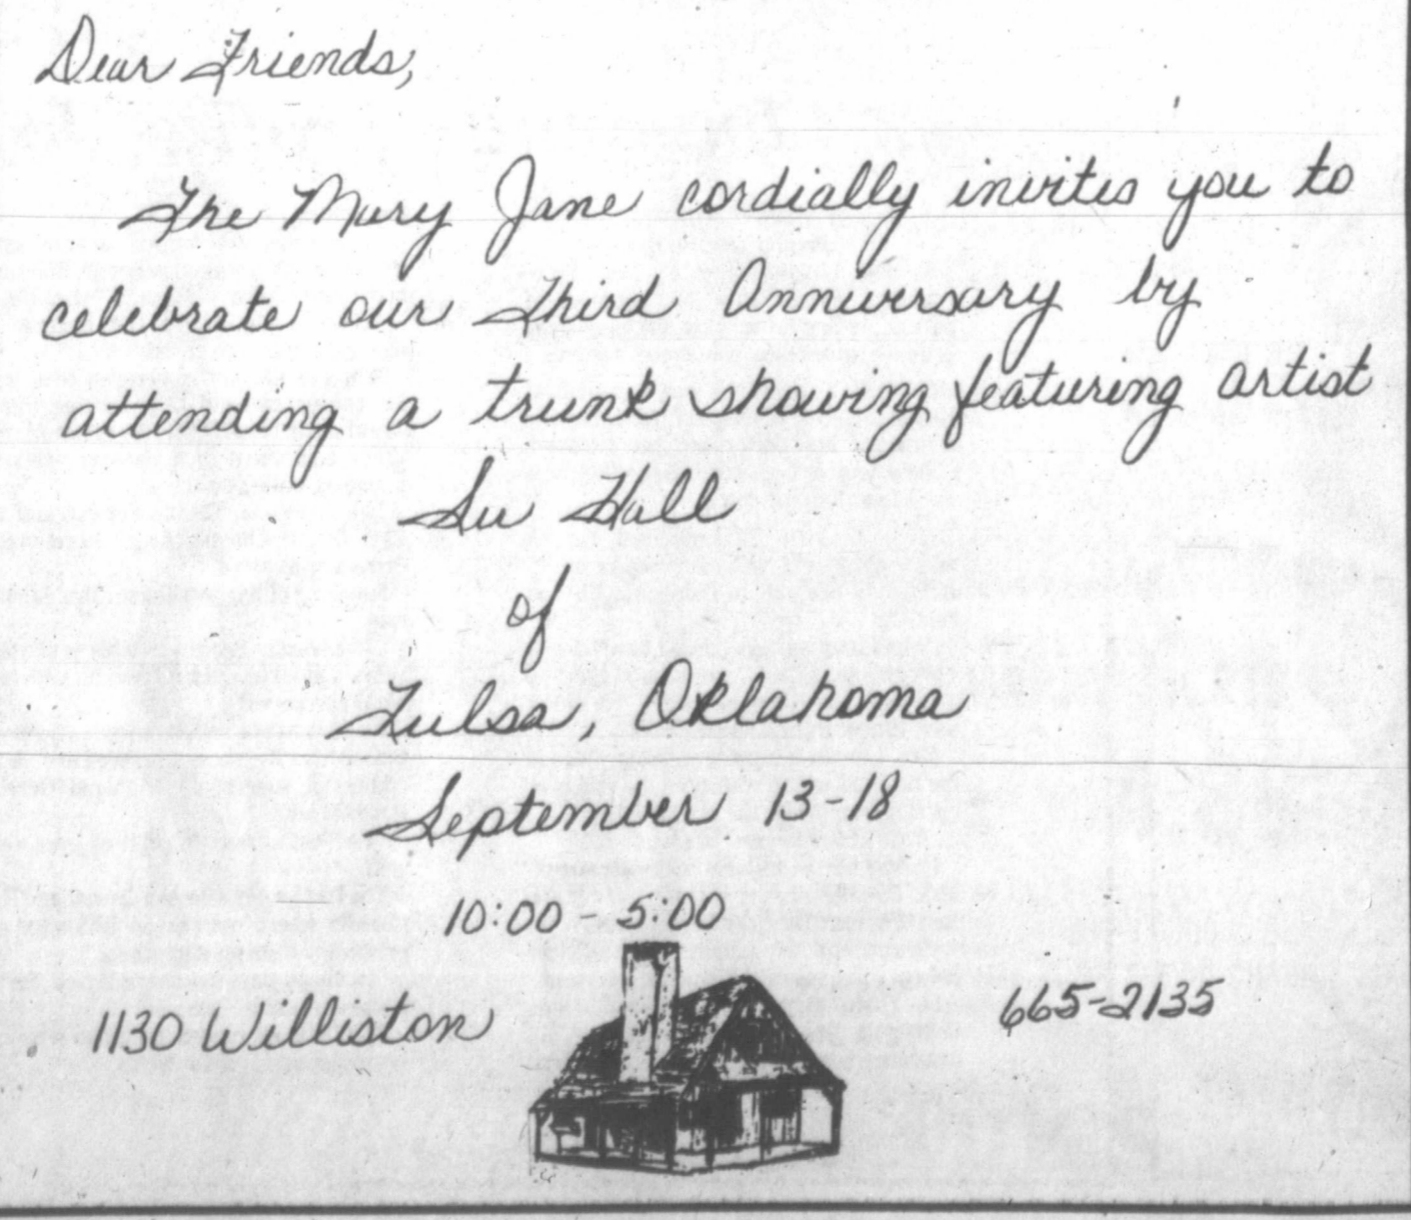 Dear Friends,
The Mary Jane cordially invites you to
celebrate our Third Anniversary by
attending a trunk showing featuring artist
Su Hall
of
Tulsa, Oklahoma
September 13-18
10:00 - 5:00
1130 Williston
665-2135